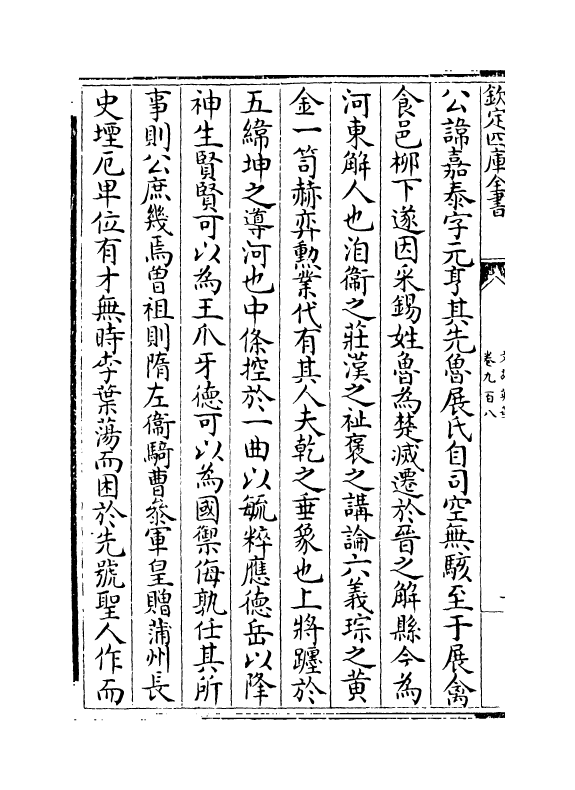 欽定四庫全書
卷九百八
公諱嘉泰字元亨其先魯展氏自司空無駭至于展禽
食邑柳下遂因采錫姓魯為楚滅遷於晉之解縣今為
河東解人也洎衞之莊漢之祉褒之講論六義琮之黄
金一笥赫弈勲業代有其人夫乾之垂象也上將躔於
五緯坤之導河也中條控於一曲以毓粹應德岳以降
神生賢賢可以為王爪牙德可以為國禦侮孰任其所
事則公庶幾焉曽祖則隋左衞騎曹叅軍皇贈蒲州長
史堙厄卑位有才無時李葉蕩而困於先號聖人作而